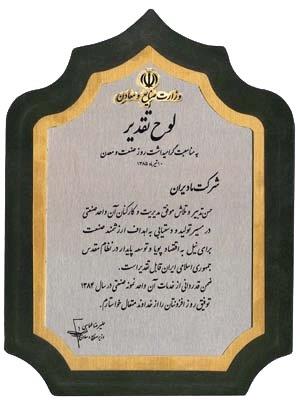 وزارت صنایع و معادن
لوح تقدیر
به مناسبت گرامیداشت روز صنعت و معدن
۱۰ تیرماه ۱۳۸۵
شرکت مادیران
حسن تدبیر و تلاش موفق مدیریت و کارکنان آن واحد صنعتی
در مسیر تولید و دستیابی به اهداف ارزشمند صنعت
برای نیل به اقتصاد پویا و توسعه پایدار در نظام مقدس
جمهوری اسلامی ایران قابل تقدیر است.
ضمن قدردانی از خدمات آن واحد نمونه صنعتی در سال ۱۳۸۴
توفیق روز افزونتان را از خداوند متعال خواستارم.
علیرضا طهماسبی
وزیر صنایع و معادن